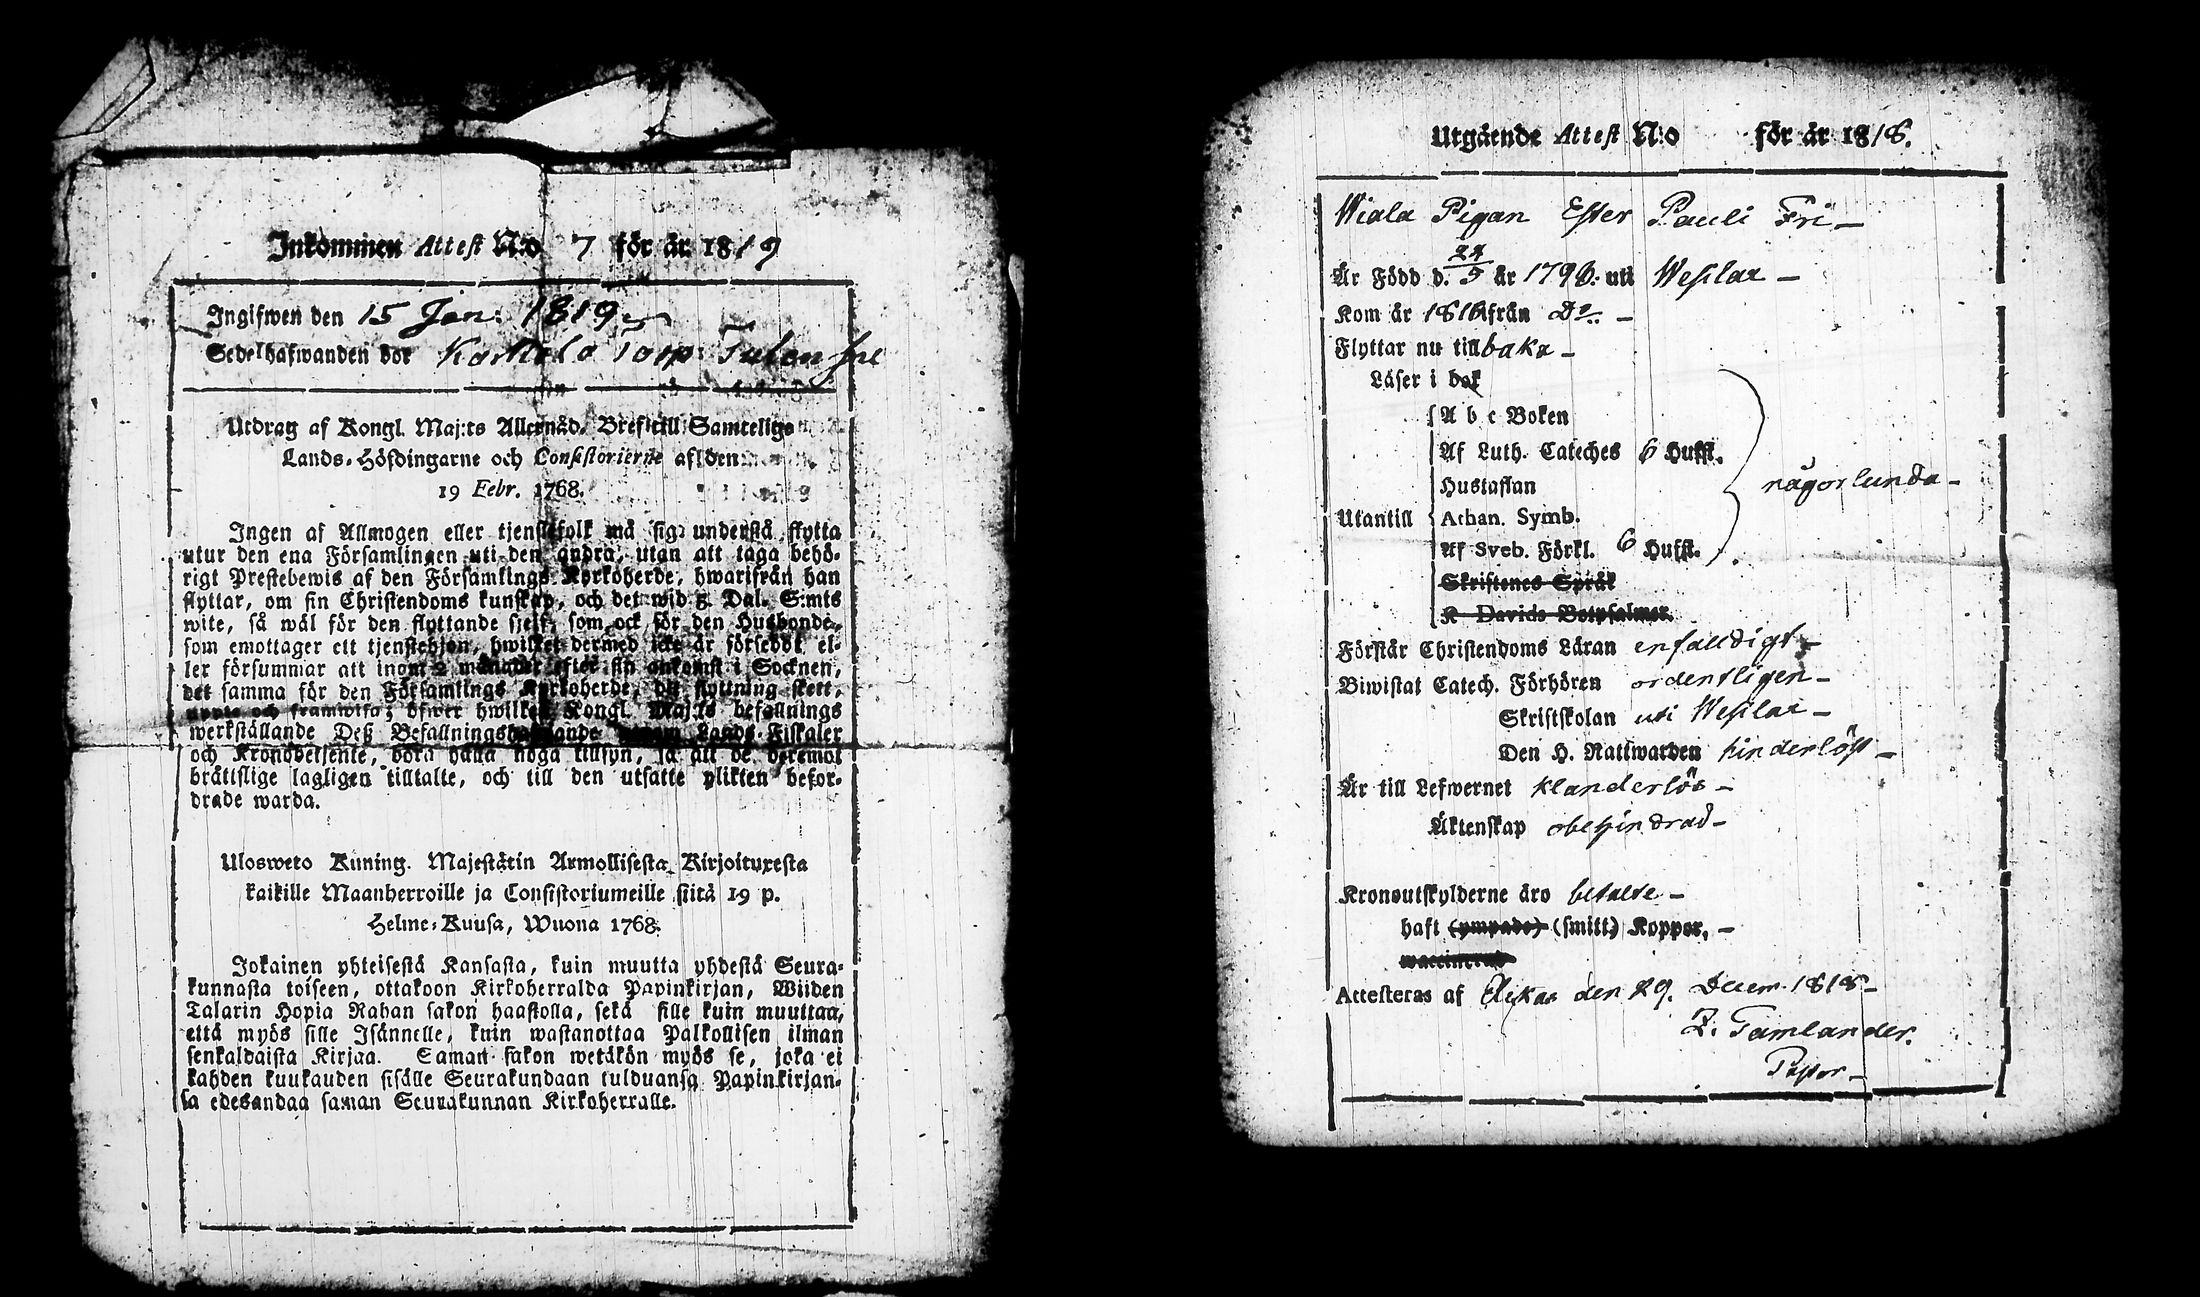 Inkommen Attest N:o 7 för år 1819
Ingifwen den 15 Jan: 1819
Sedelhafwanden bor Torp
Utdrag af Kongl. Maj:ts Allernåd. Bref till Samtelige
Lands-Höfdingarne och Consistorierne af den
19 Febr. 1768.
Ingen af Allmogen eller tjenstefolk må sig understå flytta
utur den ena Församlingen uti den andra, utan att taga behö-
rigt Prestebewis af den Församlings Kyrkoherde, hwarifrån han
flyttar, om sin Christendoms kunskap, och det wid 5. Dal. S:mts
wite, så wäl för den flyttande sjelf, som ock för den Husbonde,
som emottager ett tjenstehjon, hwilket dermed icke är försedd, el-
ler försummar att inom 2 månader efter sin ankomst i Socknen,
det samma för den Församlings Kyrkoherde, dit flyttning skett,
uppte och framwisa; öfwer hwilket Kongl. Maj:ts befallnings
werkställande Deß Befallningshafwande genom Lands-Fiskaler
och Kronobetjente, böra hålla noga tillsyn, så att de deremot
bråttslige lagligen tilltalte, och till den utsatte plikten befor-
drade warda.
Ulosweto Kuning. Majestätin Armollisesta Kirjoituxesta
kaikille Maanherroille ja Consistoriumeille siitä 19 p.
Helme-Kuusa, Wuona 1768.
Jokainen yhteisestä Kansasta, kuin muutta yhdestä Seura-
kunnasta toiseen, ottakoon Kirkoherralda Papinkirjan, Wiiden
Talarin Hopia Rahan sakon haastolla, sekä sille kuin muuttaa,
että myös sille Isännelle, kuin wastanottaa Palkollisen ilman
senkaldaista Kirjaa. Saman sakon wetäkön myös se, joka ei
kahden kuukauden sisälle Seurakundaan tulduansa Papinkirjan-
sa edesandaa saman Seurakunnan Kirkoherralle.
Utgående Attest N:o för år 1818.
Wiala Pigan Ester Pauli Fri
Är Född d. 24/5 år 1798. uti Wesilax
Kom år 1818 från Do.
Flyttar nu tillbaka
Läser i bok
A b c Boken
Af Luth. Cateches 6 Hufst.
Hustaflan
någorlunda
Utantill Athan. Symb.
Af Sveb. Förkl. 6 Hufst.
Skriftenes Språk
K Davids Botpsalmer
Förstår Christendoms Läran enfaldigt
Biwistat Catech. Förhören ordentligen
Skriftskolan uti Wesilax
Den H. Nattwarden hinderlöst
Är till Lefwernet klanderlös
Äktenskap obehindrad
Kronoutskylderne äro betalte
haft (ympade) (smitt) Koppor,
waccinerad
Attesteras af den 29. Decem. 1818
Z. Tamlander.
Pastor